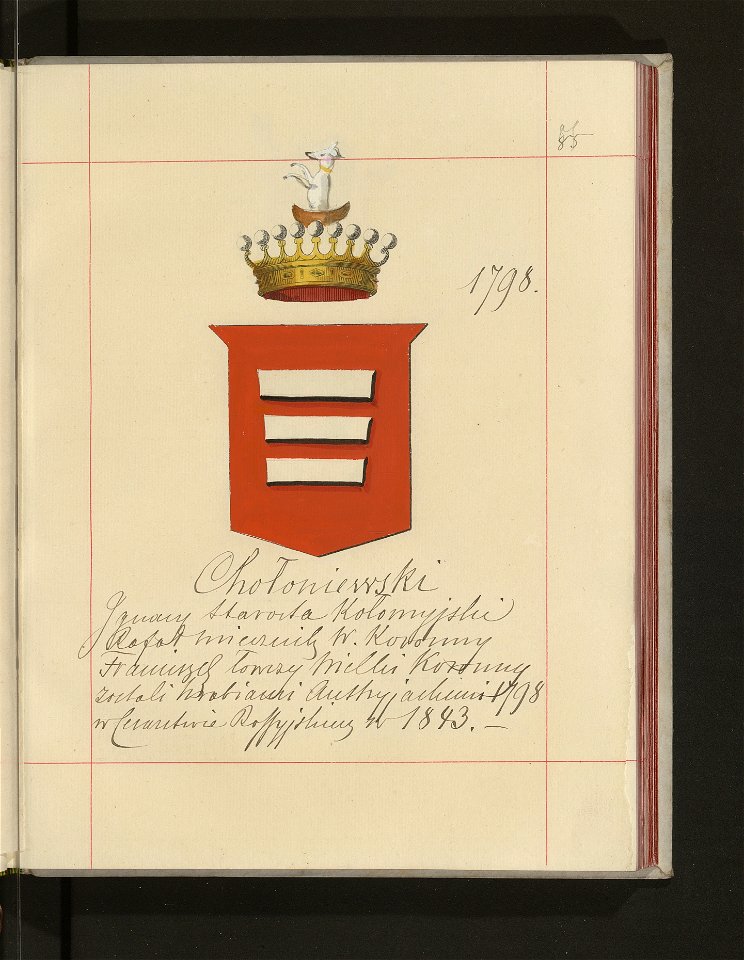 85
1798.
Chołoniewski
Ignacy Starosta Kołomyjski
Rafał Miecznik W. Koronny
Franciszek Łowczy Wielki Koronny
zostali hrabiami Austryjackimi 1798
w Cesarstwie Rossyjskiem w 1843. —